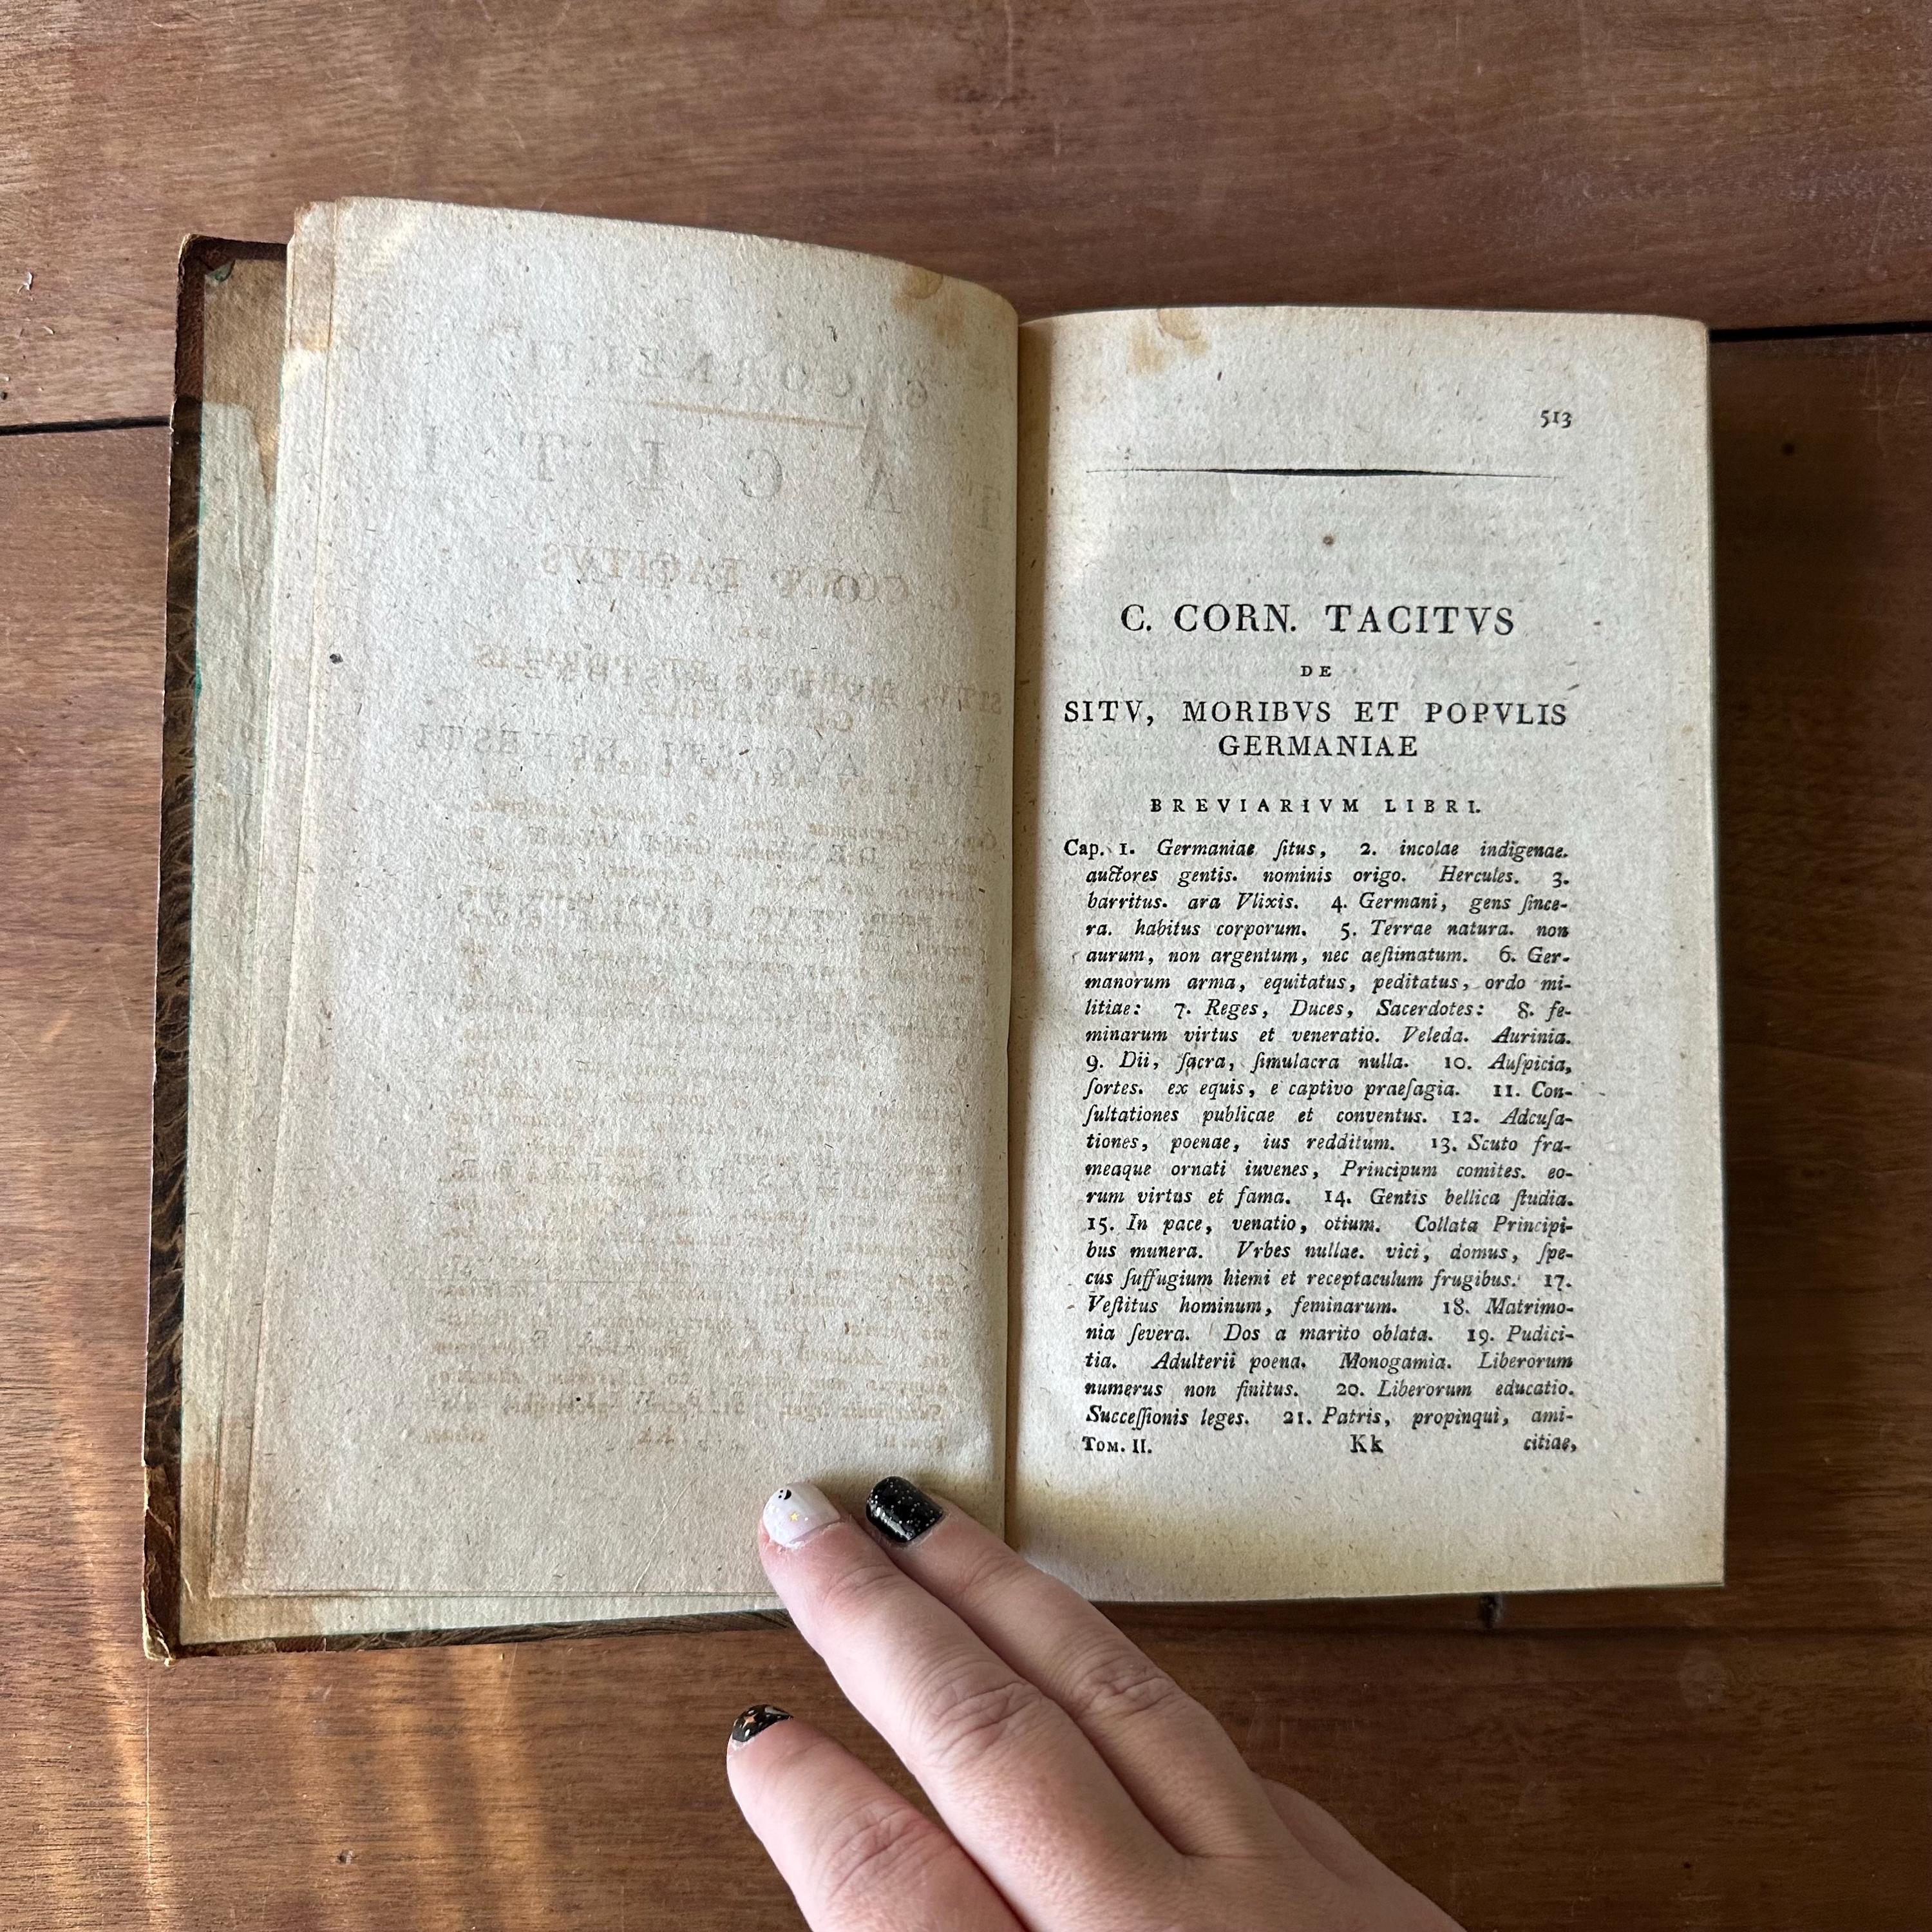 513
C. CORN. TACITVS
DE
SITV, MORIBVS ET POPVLIS
GERMANIAE
BREVIARIVM LIBRI.
Cap. 1. Germaniae ſitus, 2. incolae indigenae.
auctores gentis. nominis origo. Hercules. 3.
barritus. ara Vlixis. 4. Germani, gens ſince-
ra. habitus corporum. 5. Terrae natura. non
aurum, non argentum, nec aeſtimatum. 6. Ger-
manorum arma, equitatus, peditatus, ordo mi-
litiae: 7. Reges, Duces, Sacerdotes: 8. fe-
minarum virtus et veneratio. Veleda. Aurinia.
9. Dii, ſacra, ſimulacra nulla. 10. Auſpicia,
ſortes. ex equis, e captivo praeſagia. 11. Con-
ſultationes publicae et conventus. 12. Adcuſa-
tiones, poenae, ius redditum. 13. Scuto fra-
meaque ornati iuvenes, Principum comites. eo-
rum virtus et fama. 14. Gentis bellica ſtudia.
15. In pace, venatio, otium. Collata Principi-
bus munera. Vrbes nullae. vici, domus, ſpe-
cus ſuffugium hiemi et receptaculum frugibus. 17.
Veſtitus hominum, feminarum. 18. Matrimo-
nia ſevera. Dos a marito oblata. 19. Pudici-
tia. Adulterii poena. Monogamia. Liberorum
numerus non finitus. 20. Liberorum educatio.
Succeſſionis leges. 21. Patris, propinqui, ami-
Tom. II. Kk citiae,